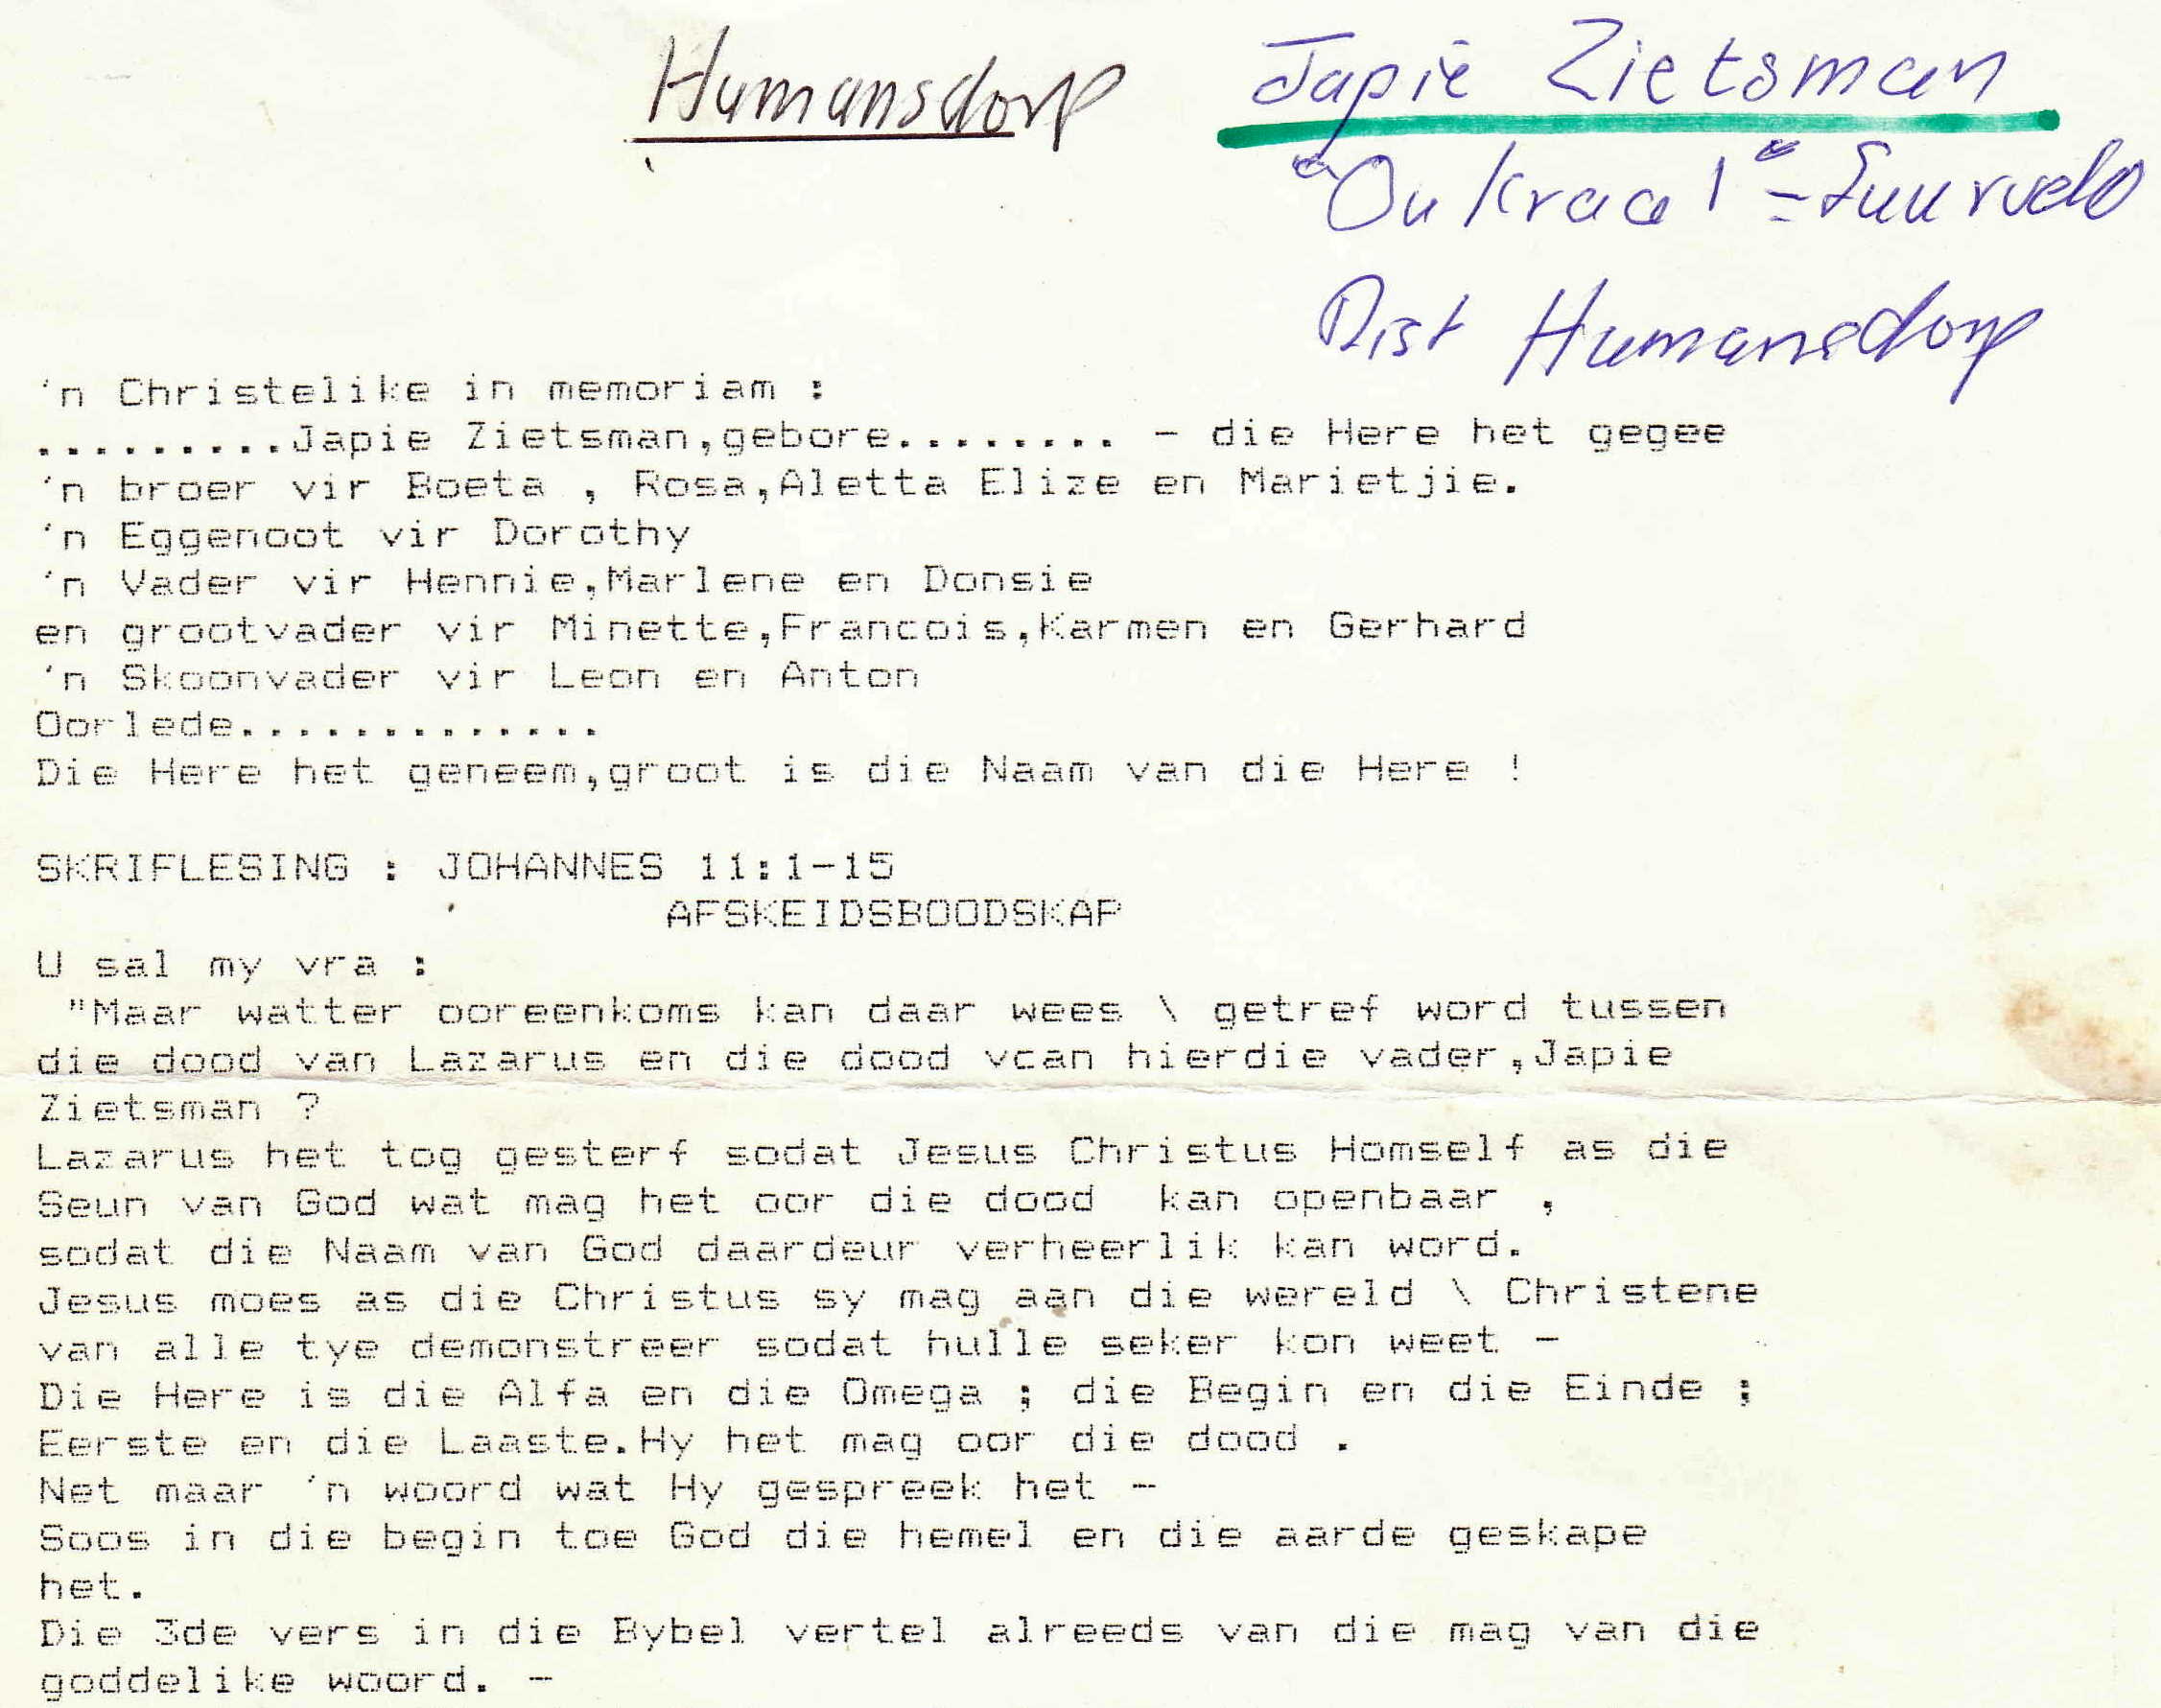 Humansdorp
Japie Zietsman
"Ou Kraal" - Suurveld
Dist Humansdorp
'n Christelike in memoriam :
.........Japie Zietsman,gebore........ - die Here het gegee
'n broer vir Boeta , Rosa,Aletta Elize en Marietjie.
'n Eggenoot vir Dorothy
'n Vader vir Hennie,Marlene en Donsie
en grootvader vir Minette,Francois,Karmen en Gerhard
'n Skoonvader vir Leon en Anton
Oorlede.............
Die Here het geneem,groot is die Naam van die Here !
SKRIFLESING : JOHANNES 11:1-15
AFSKEIDSBOODSKAP
U sal my vra :
"Maar watter ooreenkoms kan daar wees \ getref word tussen
die dood van Lazarus en die dood vcan hierdie vader,Japie
Zietsman ?
Lazarus het tog gesterf sodat Jesus Christus Homself as die
Seun van God wat mag het oor die dood  kan openbaar ,
sodat die Naam van God daardeur verheerlik kan word.
Jesus moes as die Christus sy mag aan die wereld \ Christene
van alle tye demonstreer sodat hulle seker kon weet -
Die Here is die Alfa en die Omega ; die Begin en die Einde ;
Eerste en die Laaste.Hy het mag oor die dood .
Net maar 'n woord wat Hy gespreek het -
Soos in die begin toe God die hemel en die aarde geskape
het.
Die 3de vers in die Bybel vertel alreeds van die mag van die
goddelike woord. -